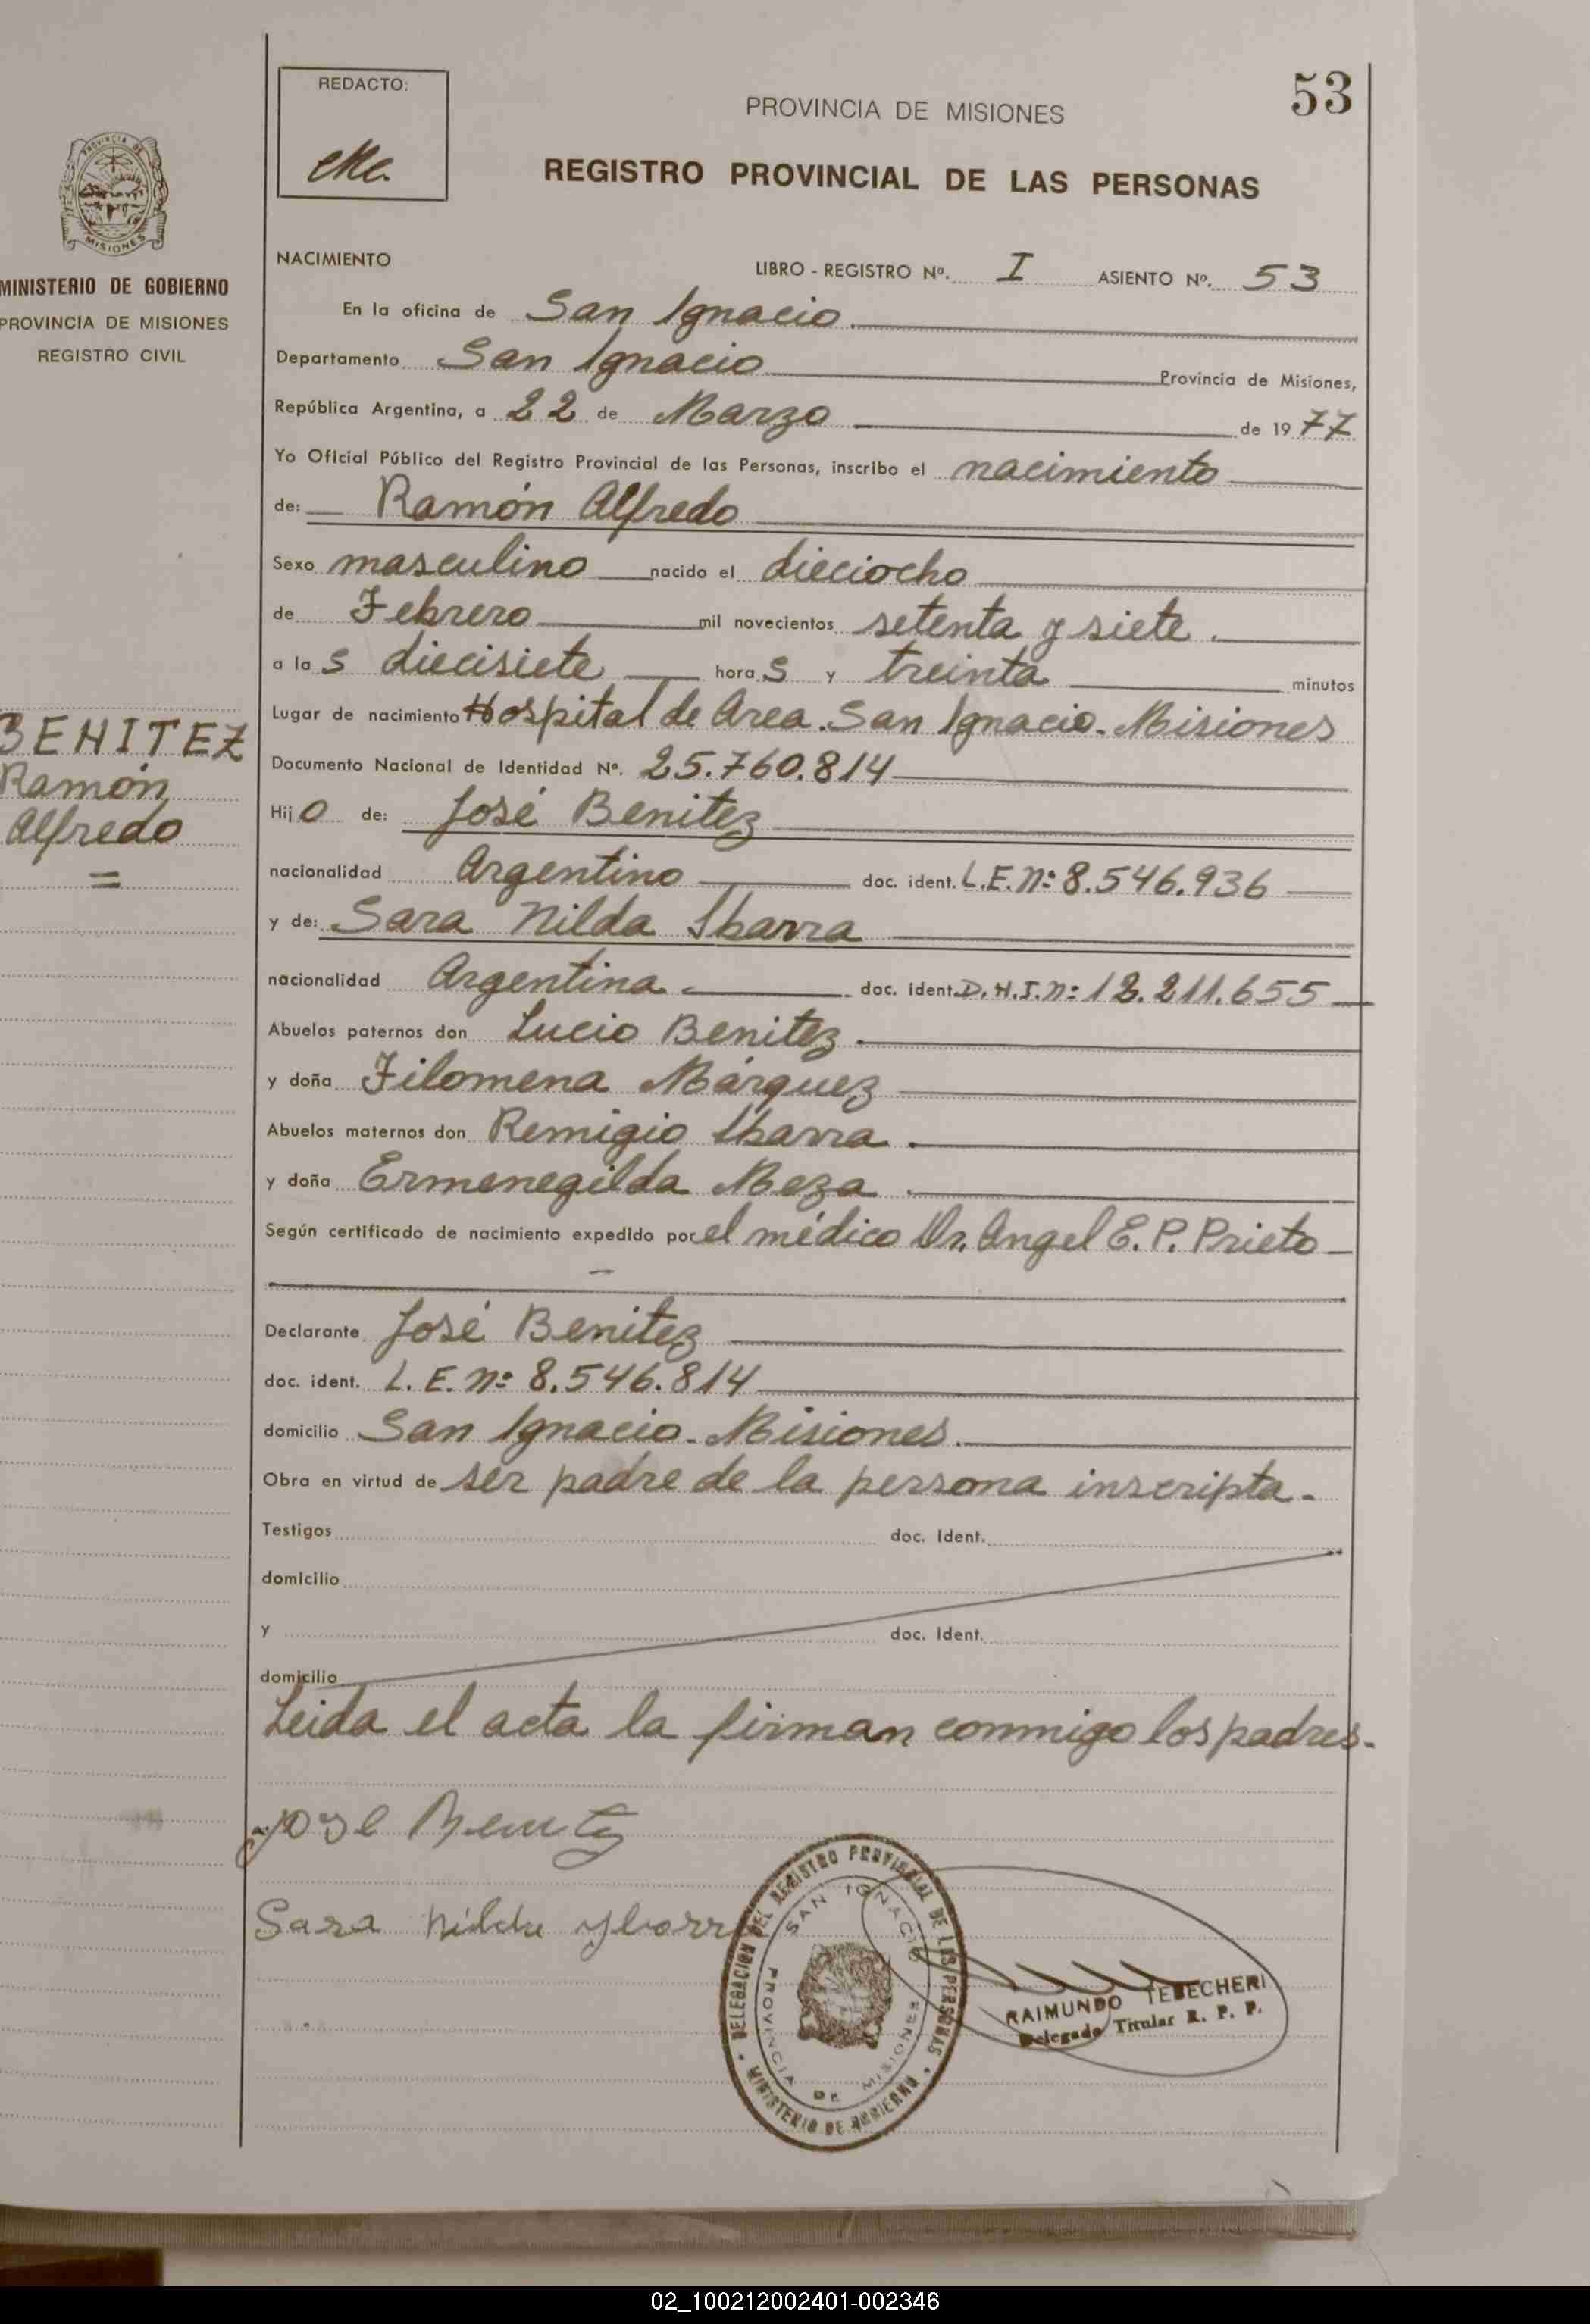 53
REDACTO:
PROVINCIA DE MISIONES
REGISTRO PROVINCIAL DE LAS PERSONAS
PROVINCIA DE
MISIONES
MINISTERIO DE GOBIERNO
PROVINCIA DE MISIONES
REGISTRO CIVIL
NACIMIENTO
LIBRO - REGISTRO Nº. I ASIENTO Nº. 53
En la oficina de San Ignacio.
Departamento San Ignacio Provincia de Misiones,
República Argentina, a 22 de Marzo de 1977
Yo Oficial Público del Registro Provincial de las Personas, inscribo el nacimiento
de: Ramón Alfredo
Sexo masculino nacido el dieciocho
de Febrero mil novecientos setenta y siete.
a las diecisiete horas y treinta minutos
Lugar de nacimiento Hospital de Area. San Ignacio. Misiones
BENITEZ
Ramón
Alfredo
=
Documento Nacional de Identidad Nº. 25.760.814
Hijo de: José Benitez
nacionalidad Argentino doc. ident. L.E. nº 8.546.936
y de: Sara Nilda Ibarra
nacionalidad Argentina. doc. ident. D.N.I. nº 12.211.655
Abuelos paternos don Lucio Benitez.
y doña Filomena Márquez
Abuelos maternos don Remigio Ibarra.
y doña Ermenegilda Meza.
Según certificado de nacimiento expedido por el médico Dr. Angel E. P. Prieto
Declarante José Benitez
doc. ident. L. E. nº 8.546.814
domicilio San Ignacio. Misiones.
Obra en virtud de ser padre de la persona inscripta.
Testigos doc. Ident.
domicilio
y doc. Ident.
domicilio
Leida el acta la firman conmigo los padres.
Jose Benitez
Sara Nilda Ybarra
DELEGACION DEL REGISTRO PROVINCIAL DE LAS PERSONAS
SAN IGNACIO
PROVINCIA DE MISIONES
MINISTERIO DE GOBIERNO
RAIMUNDO TEBECHERI
Delegado Titular R. P. P.
02_100212002401-002346